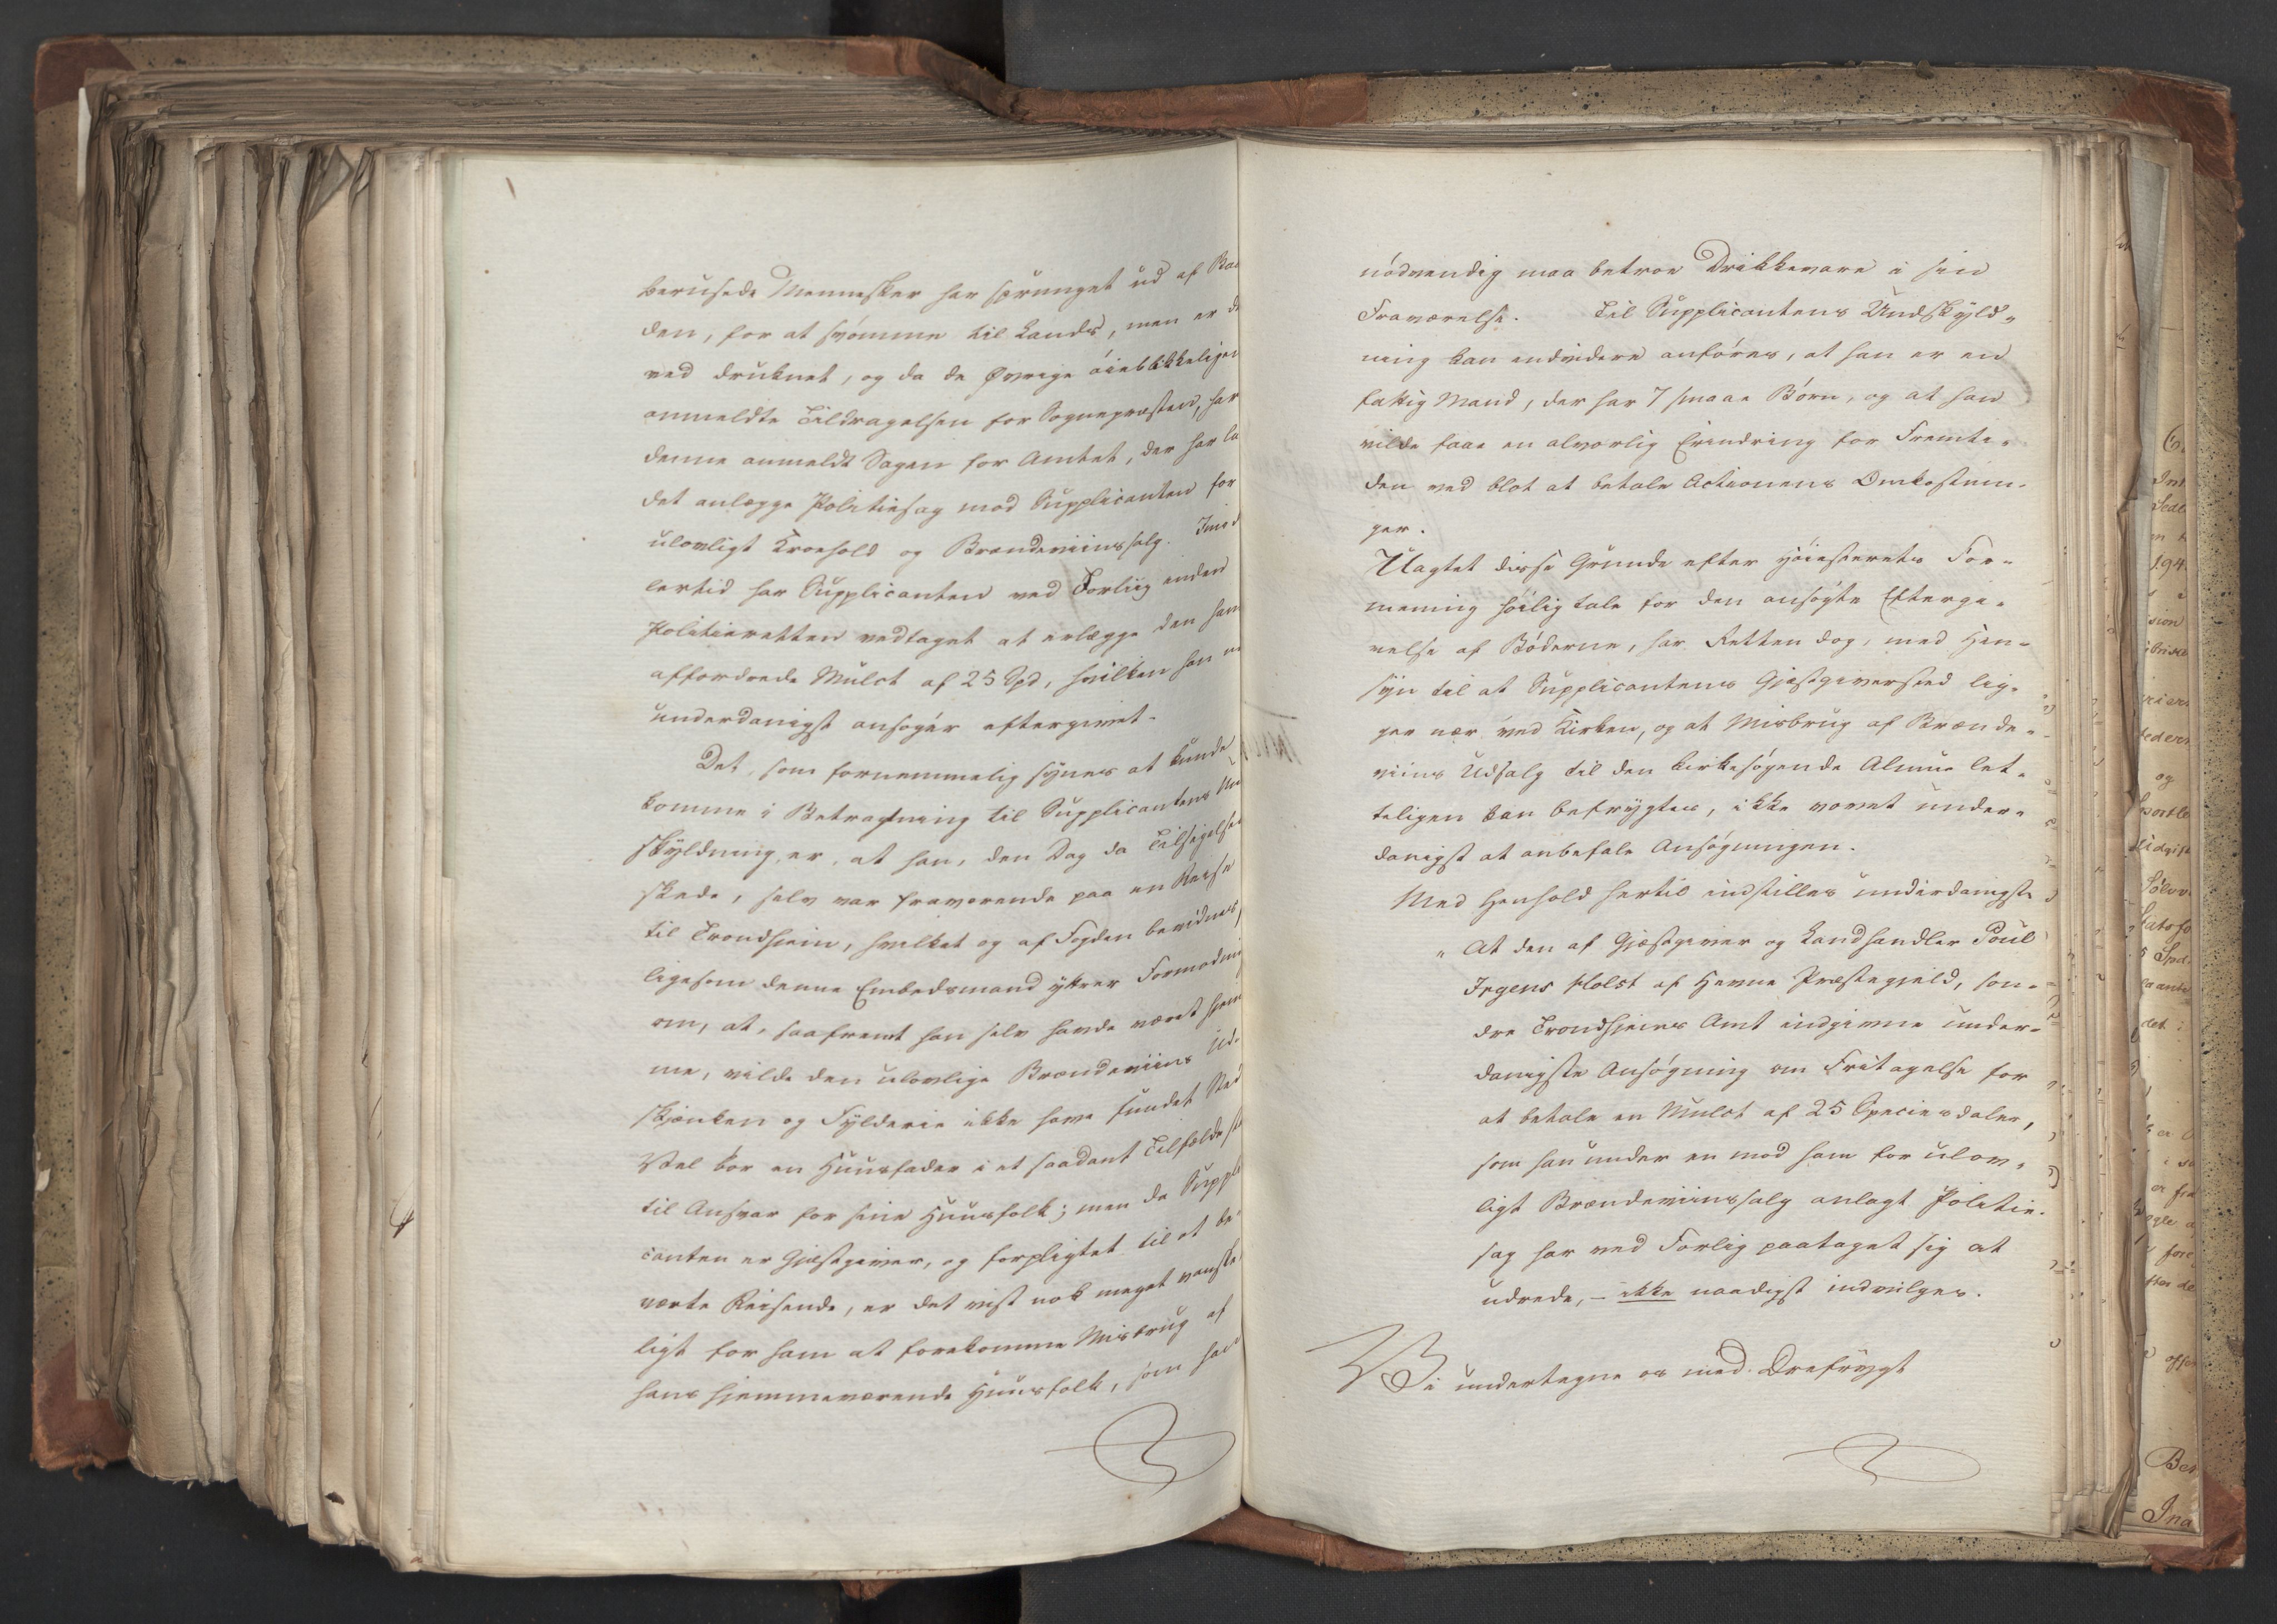 berusede Mennesker har sprunget ud af Baa
den, for at svömme til Lands, men er de
ved druknet, og da de Øvrige öieblikkeligen
anmeldte Tildragelsen for Sognepræsten, har
denne anmeldt Sagen for Amtet, der har la
det anlægge Politiesag mod Supplicanten for
ulovligt Kroehold og Brændeviinssalg. Imid
lertid har Supplicanten ved Forliig inden
Politieretten vedtaget at erlægge den ham
affordrede Mulct af 25 Spd, hvilken han nu
underdanigst ansøger eftergivet.
Det, som fornemmelig synes at kunde
komme i Betragtning til Supplicantens Und
skyldning, er, at han, den Dag da Tilsigelsen
skede, selv var fraværende paa en Reise
til Trondhjem, hvilket og af Fogden bevidnes,
ligesom denne Embedsmand yttrer Formodning
om, at, saafremt han selv havde været hjem
me, vilde den ulovlige Brændeviins Ud-
skjænken og Fylderie ikke have fundet Sted
Vel bör en Huusfader i et saadant Tilfælde staae
til Ansvar for sine Huusfolk; men da Suppli
canten er Gjæstgiver, og forpligtet til at be-
værte Reisende, er det vist nok meget vanske
ligt for ham at forekomme Misbrug af
hans hjemmeværende Huusfolk, som han
nödvendig maa betroe Drikkevare i sin
Fraværelse. Til Supplicantens Undskyld-
ning kan endvidere anföres, at han er en
fattig Mand, der har 7 smaae Börn, og at han
vilde faae en alvorlig Erindring for Fremti-
den ved blot at betale Actionens Omkostnin-
ger.
Uagtet disse Grunde efter Höiesterets For-
mening höilig tale for den ansögte Eftergi-
velse af Böderne, har Retten dog, med Hen-
syn til at Supplicantens Gjæstgiversted lig-
ger nær ved Kirken, og at Misbrug af Brænde-
viins Udsalg til den kirkesögende Almue let-
teligen kan befrygtes, ikke vovet under-
danigst at anbefale Ansögningen.
Med Henhold hertil indstilles underdanigst
" At den af Gjæstgiver og Landhandler Poul
Irgens Holst af Hevne Præstegjeld, sön-
dre Trondhjems Amt indgivne under-
danigste Ansögning om Fritagelse for
at betale en Mulct af 25 Speciesdaler,
som han under en mod ham for ulov-
ligt Brændeviinssalg anlagt Politie-
sag har ved Forlig paataget sig at
udrede, – ikke naadigst indvilges.
Vi undertegne os med Ærefrygt